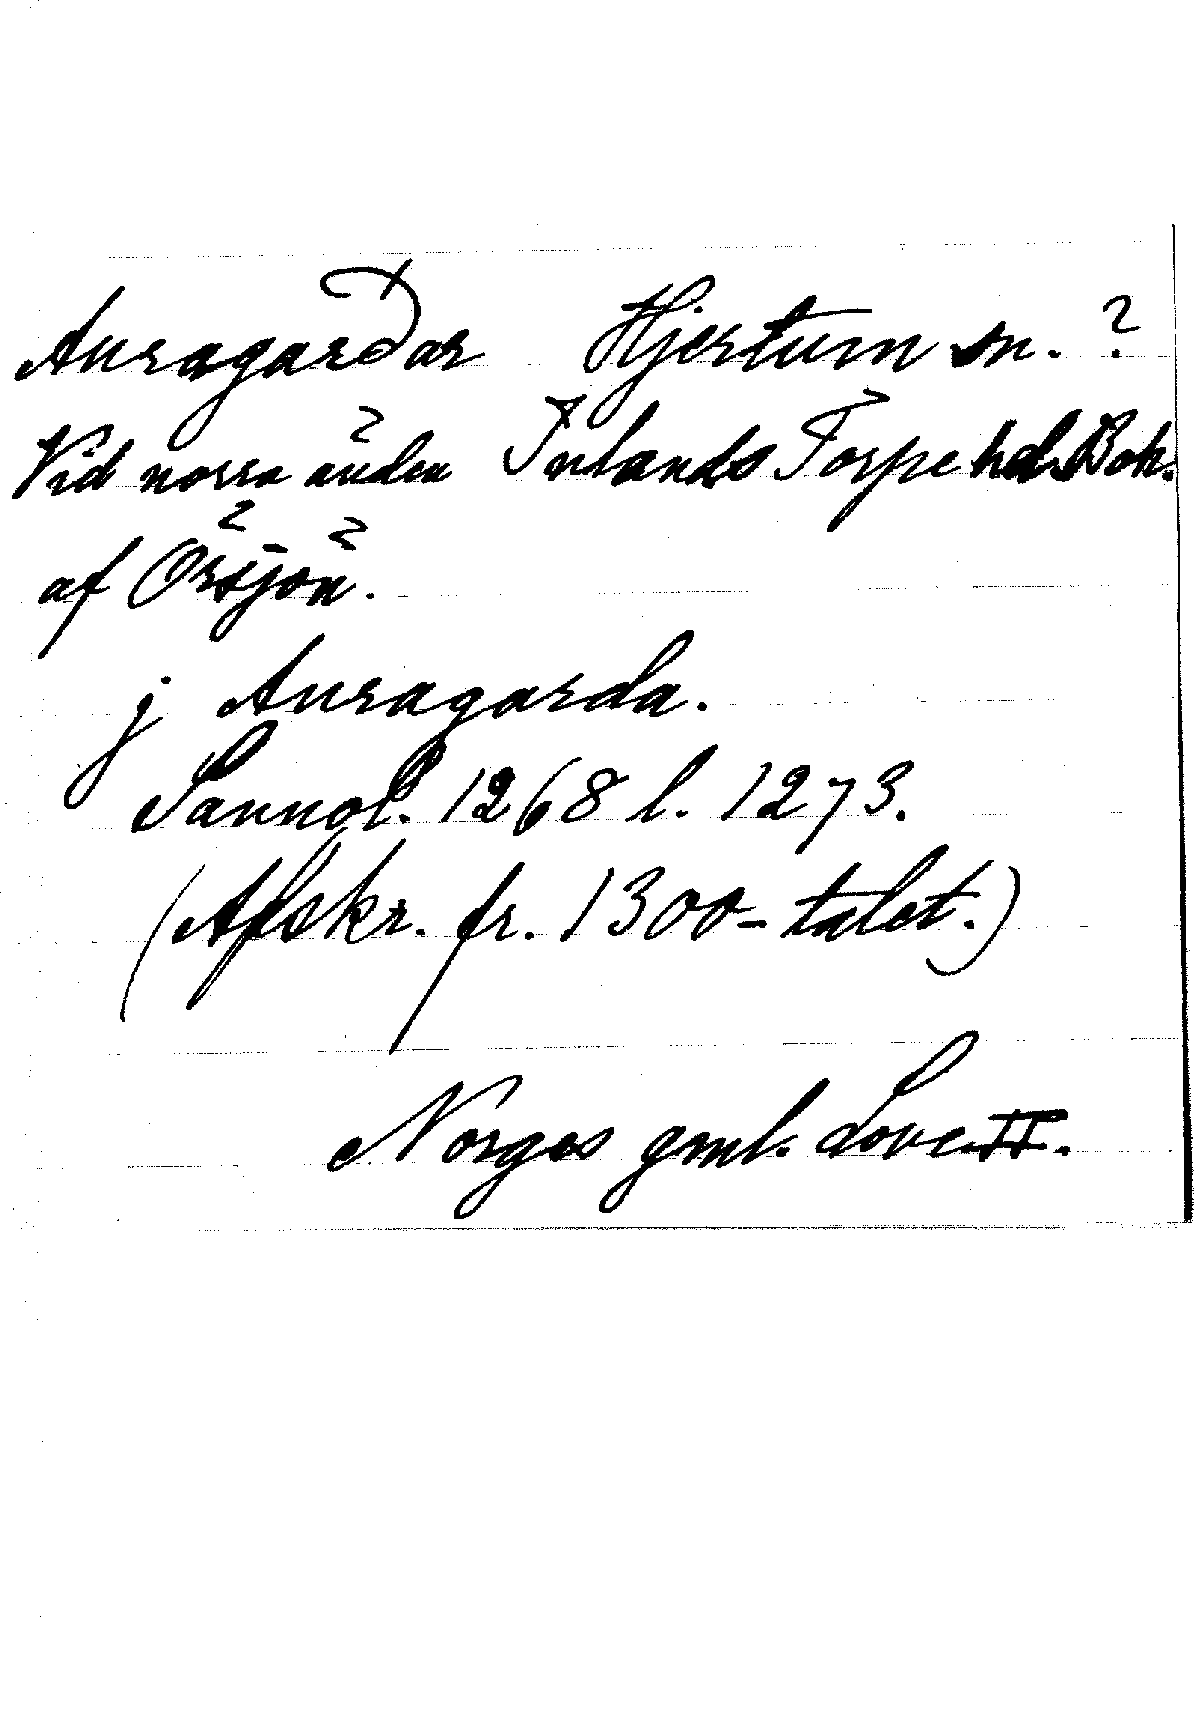 Auragarðar Hjertum sn. ?
Vid norra änden Inlands Torpe hd. Boh.
af Örsjön.
j Auragarda.
Sannol. 1268 l. 1273.
(Afskr. fr. 1300-talet.)
Norges gml. Love II.